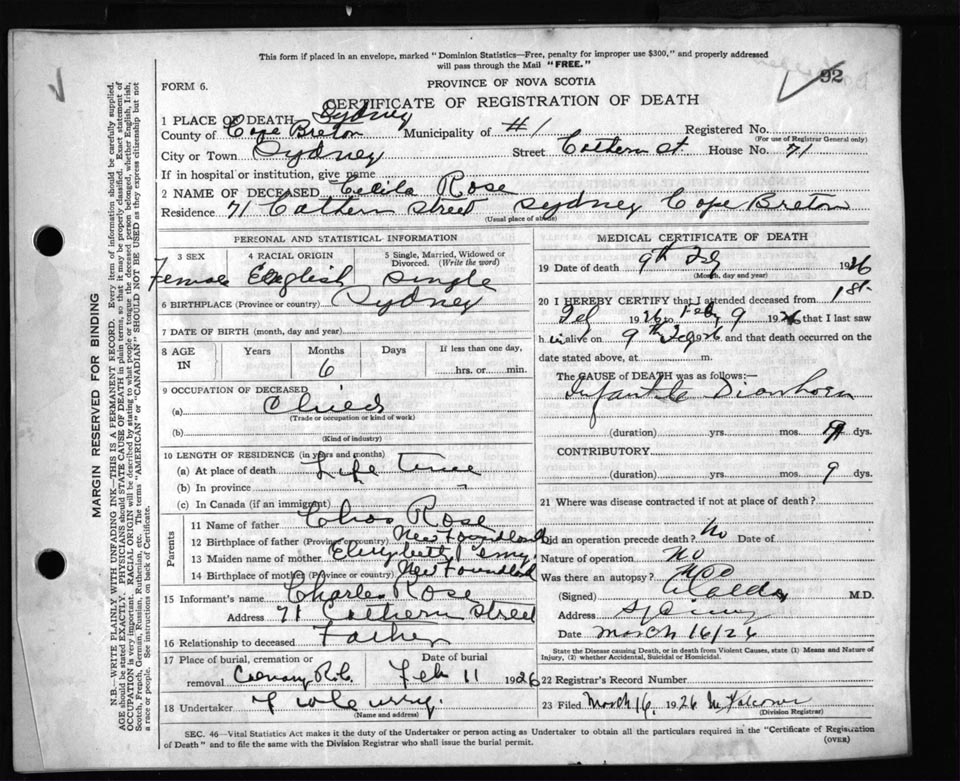 This form if placed in an envelope, marked "Dominion Statistics—Free, penalty for improper use $300," and properly addressed
will pass through the Mail "FREE."
92
PROVINCE OF NOVA SCOTIA
FORM 6.
CERTIFICATE OF REGISTRATION OF DEATH
1 PLACE OF DEATH Sydney
County of Cape Breton Municipality of #1 Registered No.
(For use of Registrar General only)
City or Town Sydney Street Cathern St. House No. 71
If in hospital or institution, give name
2 NAME OF DECEASED Cecila Rose
Residence 71 Cathern Street Sydney Cape Breton
(Usual place of abode)
PERSONAL AND STATISTICAL INFORMATION
3 SEX 4 RACIAL ORIGIN 5 Single, Married, Widowed or
Divorced. (Write the word)
Female English Single
6 BIRTHPLACE (Province or country) Sydney
7 DATE OF BIRTH (month, day and year)
8 AGE Years Months Days If less than one day,
IN 6 hrs. or min.
9 OCCUPATION OF DECEASED
(a) Child
(Trade or occupation or kind of work)
(b)
(Kind of industry)
10 LENGTH OF RESIDENCE (in years and months)
(a) At place of death Life time
(b) In province "
(c) In Canada (if an immigrant)
Parents
11 Name of father Chas Rose
12 Birthplace of father (Province or country) Newfoundland
13 Maiden name of mother Elizybeth
14 Birthplace of mother (Province or country) Newfoundland
15 Informant's name Charles Rose
Address 71 Cathern Street
16 Relationship to deceased Father
17 Place of burial, cremation or Date of burial
removal Feb 11 1926
18 Undertaker
(Name and address)
MEDICAL CERTIFICATE OF DEATH
19 Date of death 9th Feb 1926
(Month, day and year)
20 I HEREBY CERTIFY that I attended deceased from 1st
Feb 1926 to Feby 9 1926 that I last saw
h er alive on 9th Feb 1926 and that death occurred on the
date stated above, at m.
The CAUSE of DEATH was as follows:—
Infantile Diarrhoea
(duration) yrs. mos. 9 dys.
CONTRIBUTORY
(duration) yrs. mos. 9 dys.
21 Where was disease contracted if not at place of death?
Did an operation precede death? No Date of
Nature of operation No
Was there an autopsy?
(Signed) M.D.
Address Sydney
Date March 16/26
State the Disease causing Death, or in death from Violent Causes, state (1) Means and Nature of
Injury, (2) whether Accidental, Suicidal or Homicidal.
22 Registrar's Record Number
23 Filed March 16, 1926
(Division Registrar)
SEC. 46—Vital Statistics Act makes it duty of the Undertaker or person acting as Undertaker to obtain all the particulars required in the "Certificate of Registration
of Death" and to file the same with the Division Registrar who shall issue the burial permit. (OVER)
MARGIN RESERVED FOR BINDING
N.B.—WRITE PLAINLY WITH UNFADING INK—THIS IS A PERMANENT RECORD. Every item of information should be carefully supplied.
AGE should be stated EXACTLY. PHYSICIANS should STATE CAUSE OF DEATH in plain terms, so that it may be properly classified. Exact statement of
OCCUPATION is very important. RACIAL ORIGIN will be described by stating to what people or tongue the deceased person belonged, whether English, Irish,
Scotch, French, German, Russian, Ruthenian, etc. The terms "AMERICAN" or "CANADIAN" SHOULD NOT BE USED as they express citizenship but not
a race or people. See instructions on back of Certificate.